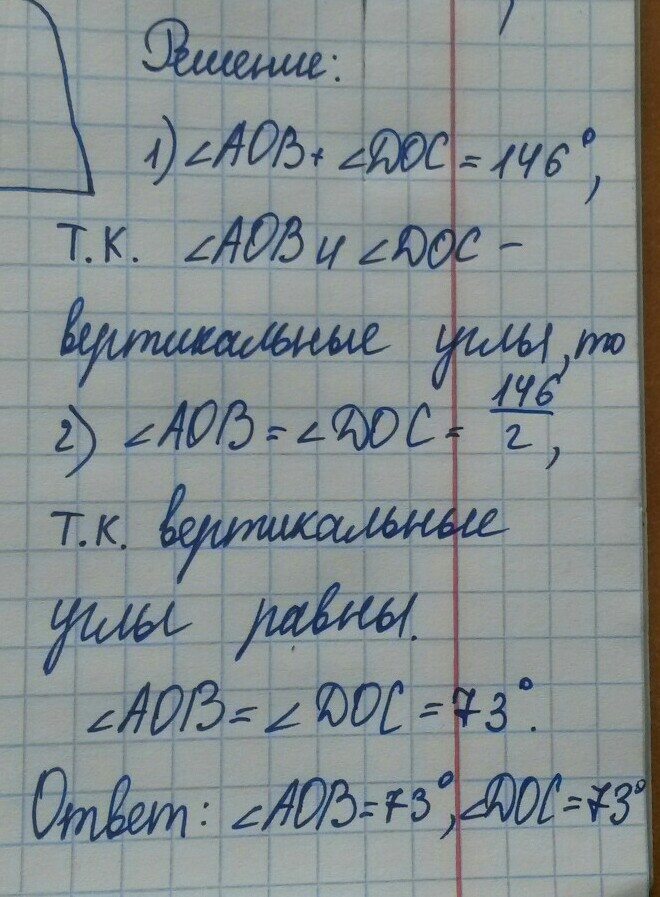 Решение:
1) ∠AOB + ∠DOC = 146°,
т.к. ∠AOB и ∠DOC –
вертикальные углы, то
2) ∠AOB = ∠DOC = 146/2,
т.к. вертикальные
углы равны.
∠AOB = ∠DOC = 73°.
Ответ: ∠AOB = 73°, ∠DOC = 73°